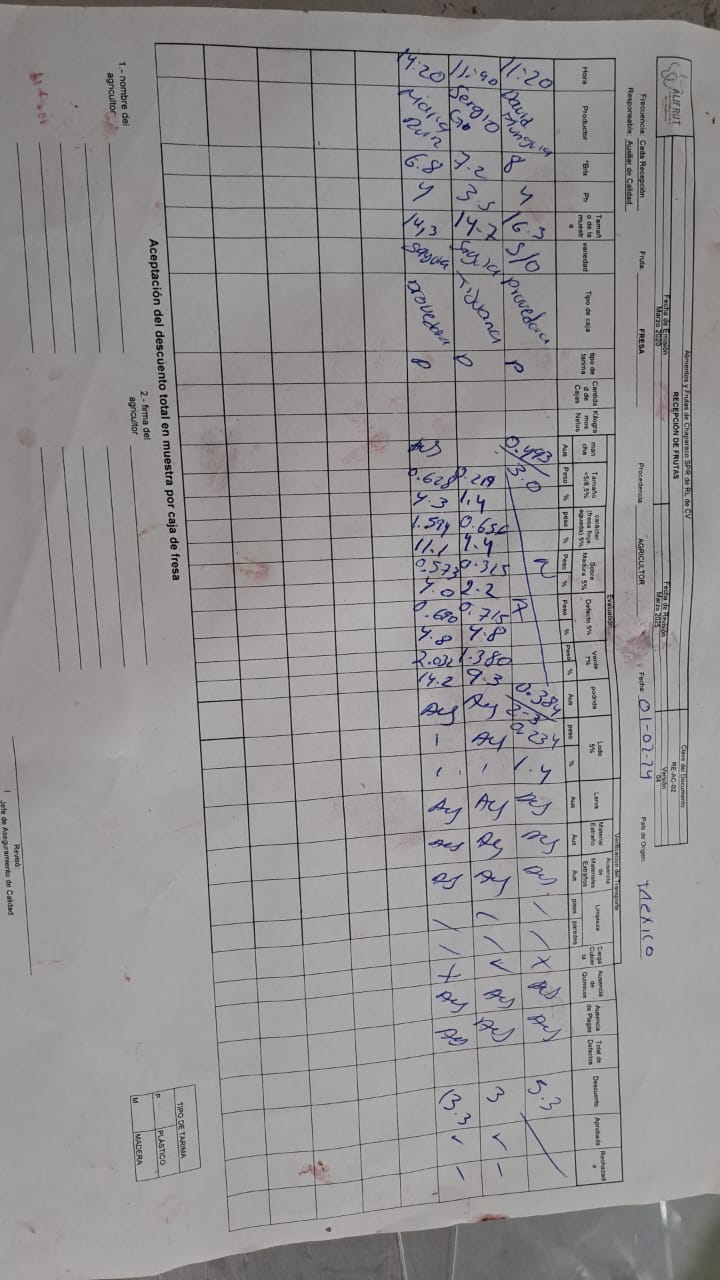 ALIFRUT
Alimentos y Frutas de Chaparaco SPR de RL de CV
RECEPCIÓN DE FRUTAS
Fecha de Emisión
Marzo 2020
Fecha de Revisión
Marzo 2025
Clave del Documento
RE-AC-02
Versión
04
Frecuencia: Cada Recepción Fruta: FRESA Procedencia: AGRICULTOR Fecha: 01-02-24 País de Origen: México
Responsable: Auxiliar de Calidad
Evaluación Verificación del Transporte
Hora Productor °Brix Ph Tamaño de la muestra variedad Tipo de caja tipo de tarima Cantidad de Cajas Kilogramos Netos mancha Tamaño <5/8,5% carácter (fresa floja, aguada) 5% Sobre Madura 5% Defecto 5% Verde 7% podrida Lodo 5% Larva Material Extraño Ausencia de Materiales Extraños Limpieza Carga Cubierta Ausencia de Químicos Ausencia de Plagas Total de Defectos Descuento Aprobada Rechazada
Aus Peso % peso % Peso % Peso % Peso % Aus peso % Aus Aus Aus pisos paredes
11:20 David Munguia 8 4 16.3 S/O Provedora P 0.493 3.0 0.384 2.3 0.234 1.4 Aus Aus Aus / / x Aus Aus 5.3
11:40 Sergio Go 7.2 3.5 14.7 Tijuana P 0.219 1.4 0.656 4.4 0.325 2.2 0.715 4.8 1.380 9.3 Aus Aus Aus Aus Aus Aus Aus 3 ✓ -
14:20 Ruiz 6.8 4 14,3 provedora P Aus 0.628 4.3 1.594 11.1 0.573 4.0 0.690 4.8 14.2 Aus Aus Aus Aus / / x Aus Aus 13.3 ✓ -
Aceptación del descuento total en muestra por caja de fresa
1.- nombre del agricultor
2.- firma del agricultor
TIPO DE TARIMA
P PLÁSTICO
M MADERA
Revisó:
Jefe de Aseguramiento de Calidad